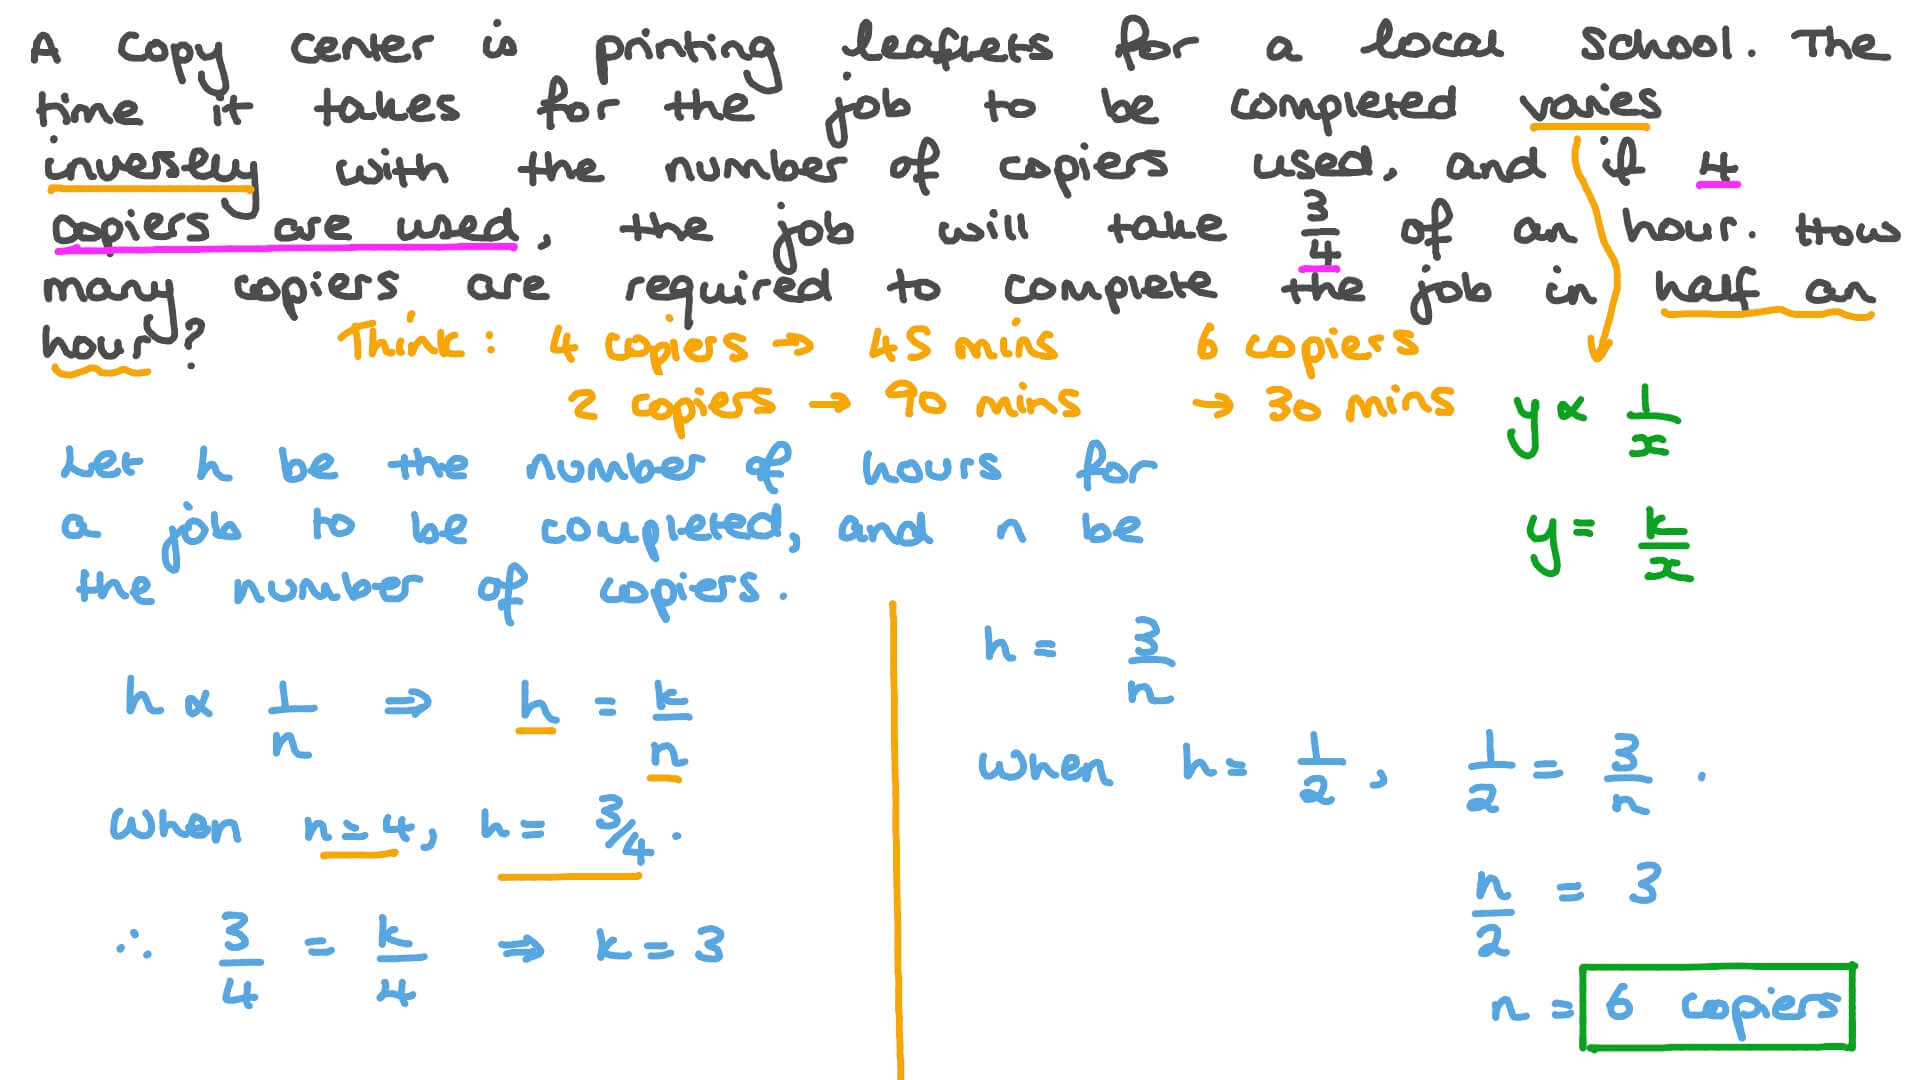 A copy center is printing leaflets for a local school. The
time it takes for the job to be completed varies
inversely with the number of copiers used, and if 4
copiers are used, the job will take 3/4 of an hour. How
many copiers are required to complete the job in half an
hour?
Think: 4 copiers → 45 mins
2 copiers → 90 mins
6 copiers
→ 30 mins
y ∝ 1/x
y = k/x
Let h be the number of hours for
a job to be completed, and n be
the number of copiers.
h ∝ 1/n ⇒ h = k/n
When n = 4, h = 3/4.
∴ 3/4 = k/4 ⇒ k = 3
h = 3/n
When h = 1/2, 1/2 = 3/n.
n/2 = 3
n = 6 copiers